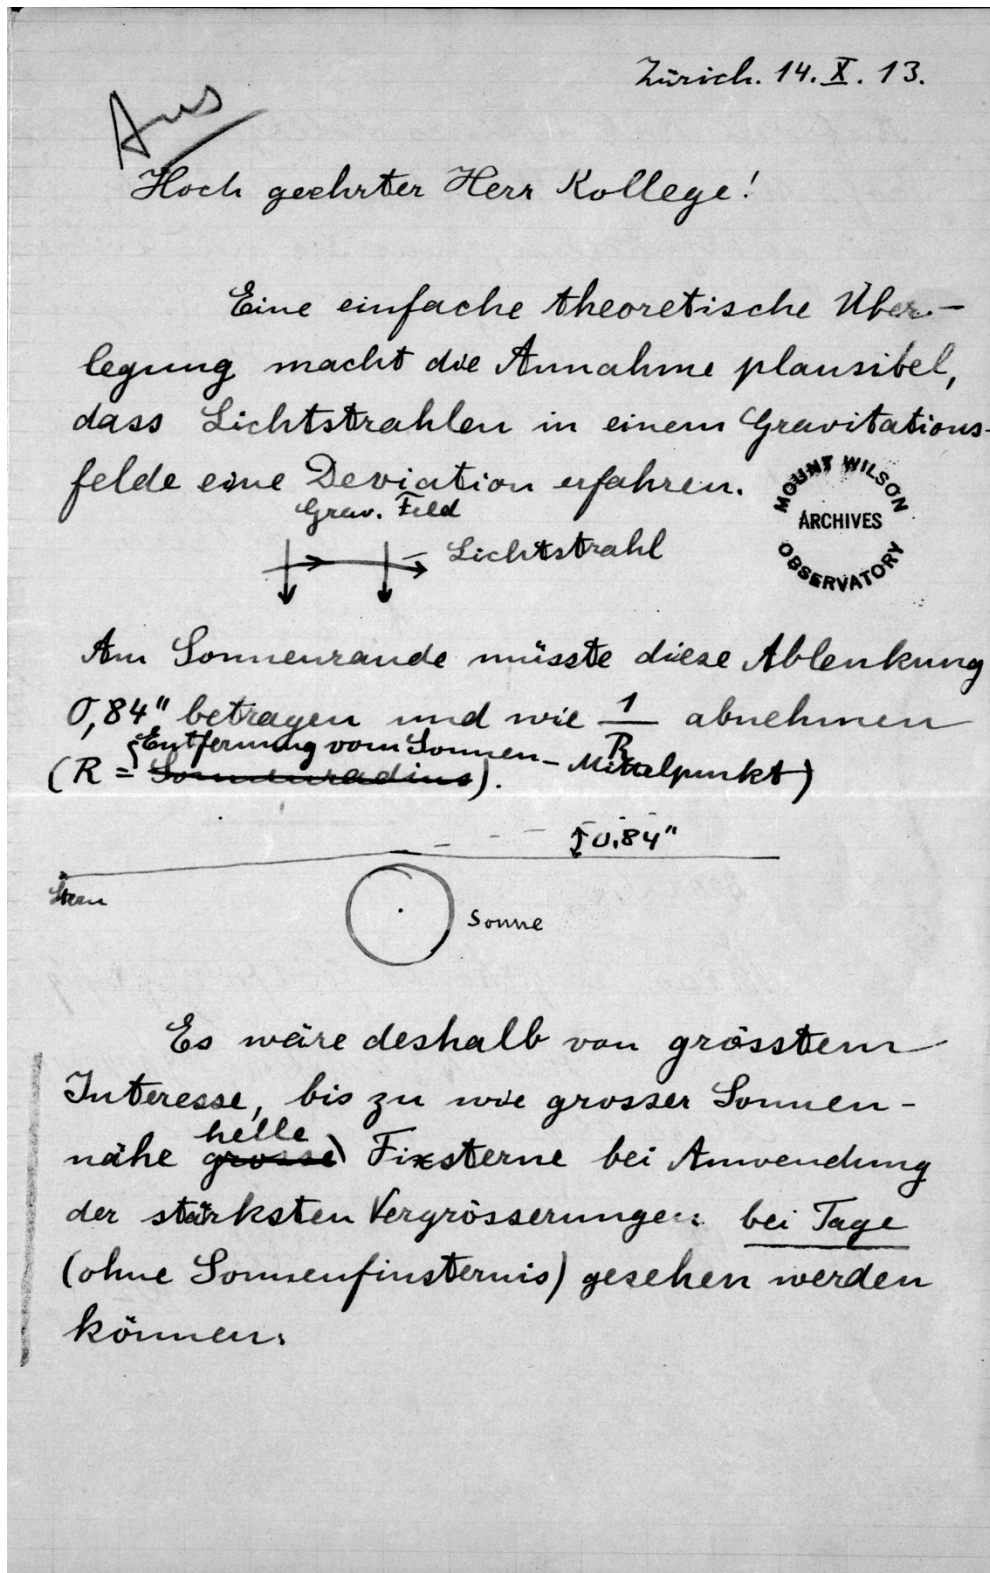 Zürich. 14. X. 13.
Aus
Hoch geehrter Herr Kollege!
Eine einfache theoretische Über-
legung macht die Annahme plausibel,
dass Lichtstrahlen in einem Gravitations-
felde eine Deviation erfahren.
MOUNT WILSON
ARCHIVES
OBSERVATORY
Grav. Feld
Lichtstrahl
Am Sonnenrande müsste diese Ablenkung
0,84" betragen und wie 1/R abnehmen
Entfernung vom Sonnen-Mittelpunkt)
(R = Sonnenradius).
0,84"
Stern
Sonne
Es wäre deshalb von grösstem
Interesse, bis zu wie grosser Sonnen-
helle
nähe grosse Fixsterne bei Anwendung
der stärksten Vergrösserungen bei Tage
(ohne Sonnenfinsternis) gesehen werden
können.